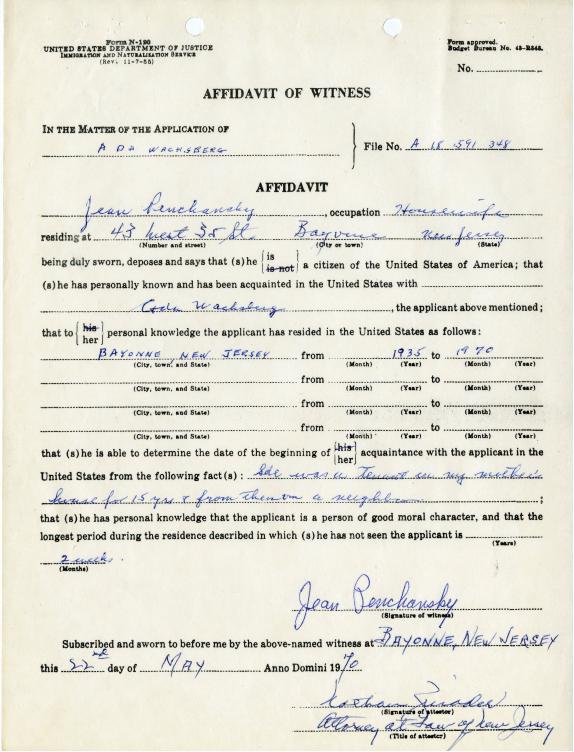 Form N-120
UNITED STATES DEPARTMENT OF JUSTICE
IMMIGRATION AND NATURALIZATION SERVICE
(Rev. 11-7-55)
Form approved.
Budget Bureau No. 43-R545.
No.
AFFIDAVIT OF WITNESS
IN THE MATTER OF THE APPLICATION OF
ADA WACHSBERG
File No. A 18 591 348
AFFIDAVIT
Jean Penchansky, occupation Housewife
residing at 43 West 35 St. Bayonne New Jersey
(Number and street) (City or town) (State)
being duly sworn, deposes and says that (s)he {is / is not} a citizen of the United States of America; that
(s)he has personally known and has been acquainted in the United States with
Ada Wachsberg, the applicant above mentioned;
that to {his / her} personal knowledge the applicant has resided in the United States as follows:
BAYONNE, NEW JERSEY from 1935 to 1970
(City, town, and State) (Month) (Year) (Month) (Year)
from to
(City, town, and State) (Month) (Year) (Month) (Year)
from to
(City, town, and State) (Month) (Year) (Month) (Year)
from to
(City, town, and State) (Month) (Year) (Month) (Year)
that (s)he is able to determine the date of the beginning of {his / her} acquaintance with the applicant in the
United States from the following fact(s): She was a tenant in my mother's
house for 15 yrs & from then on a neighbor;
that (s)he has personal knowledge that the applicant is a person of good moral character, and that the
longest period during the residence described in which (s)he has not seen the applicant is
(Years)
2 weeks.
(Months)
Jean Penchansky
(Signature of witness)
Subscribed and sworn to before me by the above-named witness at BAYONNE, NEW JERSEY
this 22nd day of MAY Anno Domini 1970
(Signature of attester)
Attorney at Law of New Jersey
(Title of attester)